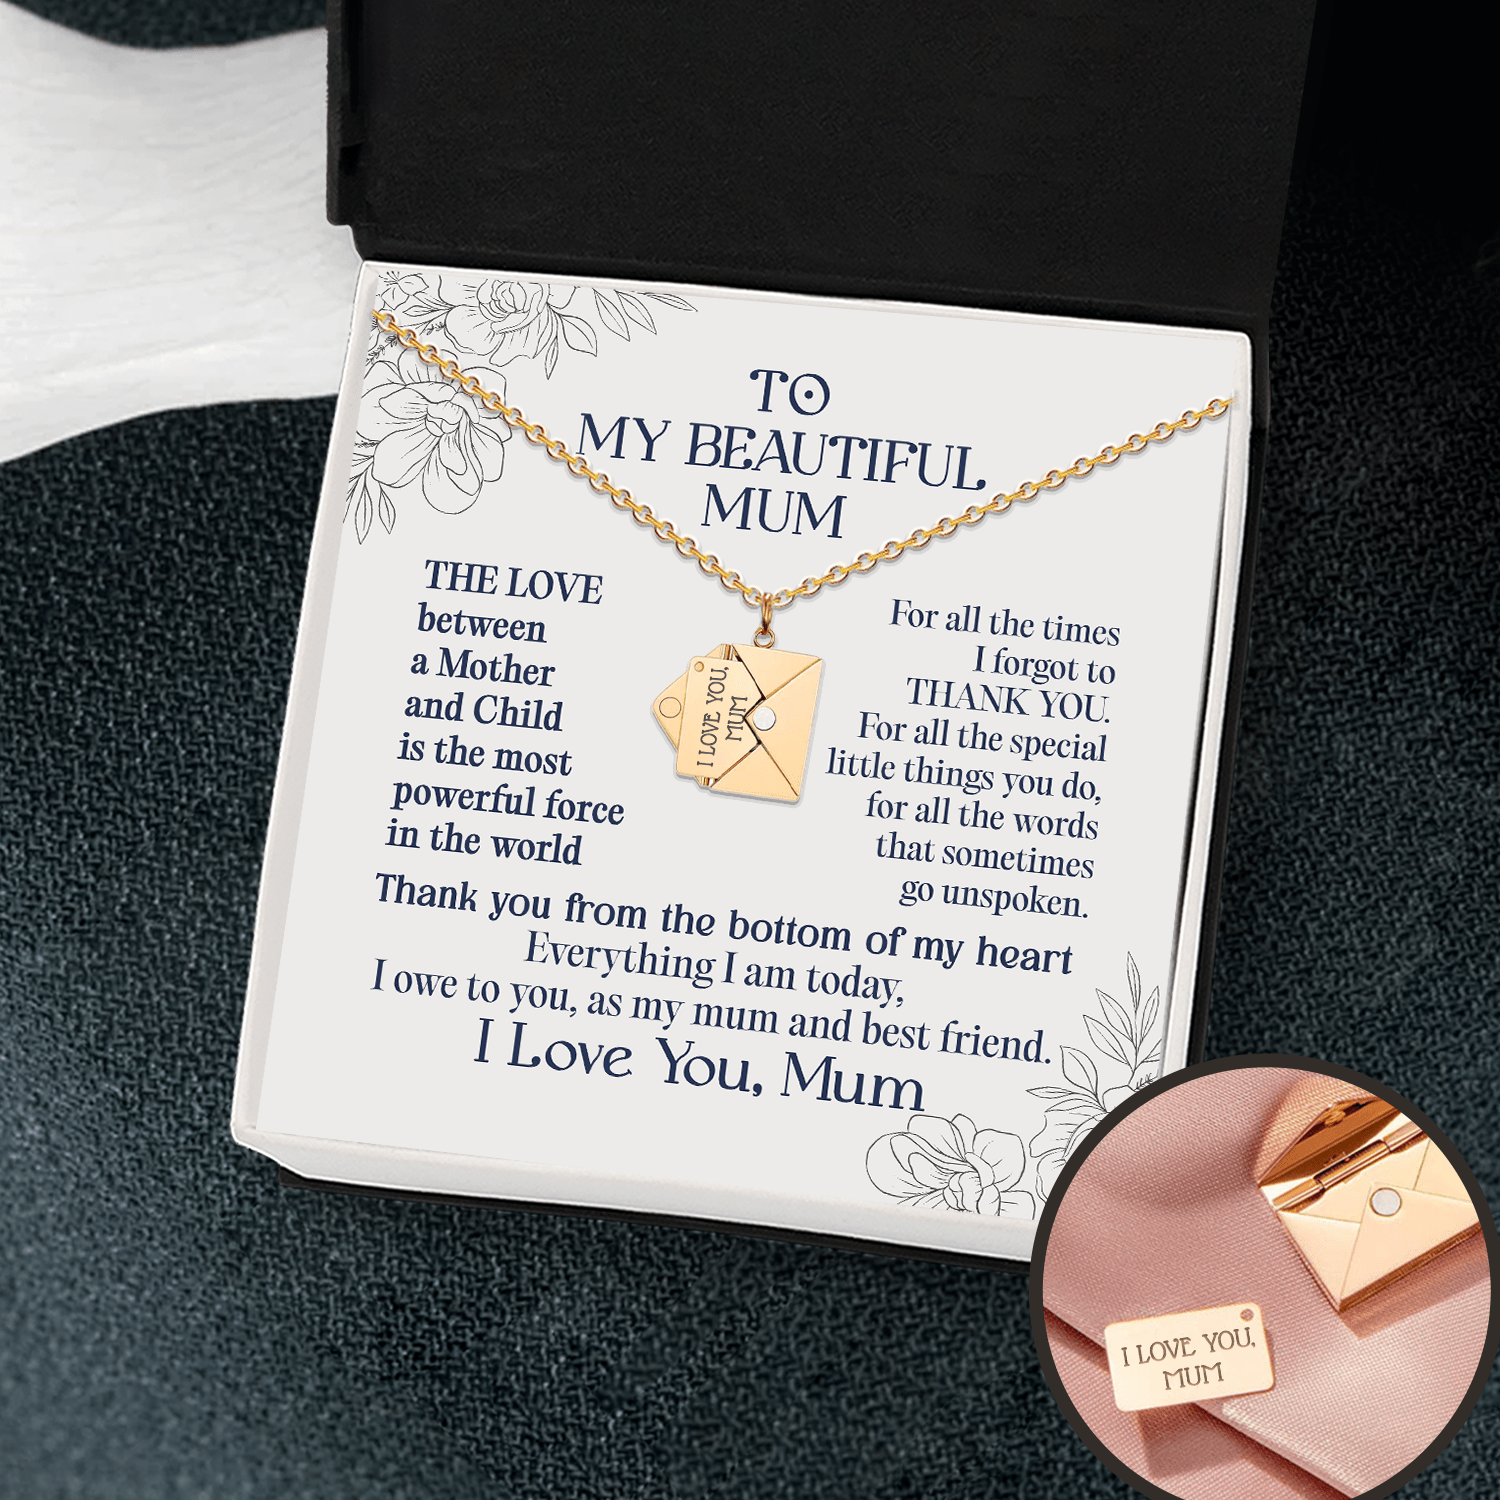 TO
MY BEAUTIFUL
MUM
THE LOVE
between
a Mother
and Child
is the most
powerful force
in the world
I LOVE YOU,
MUM
For all the times
I forgot to
THANK YOU.
For all the special
little things you do,
for all the words
that sometimes
go unspoken.
Thank you from the bottom of my heart
Everything I am today,
I owe to you, as my mum and best friend.
I Love You, Mum
I LOVE YOU,
MUM